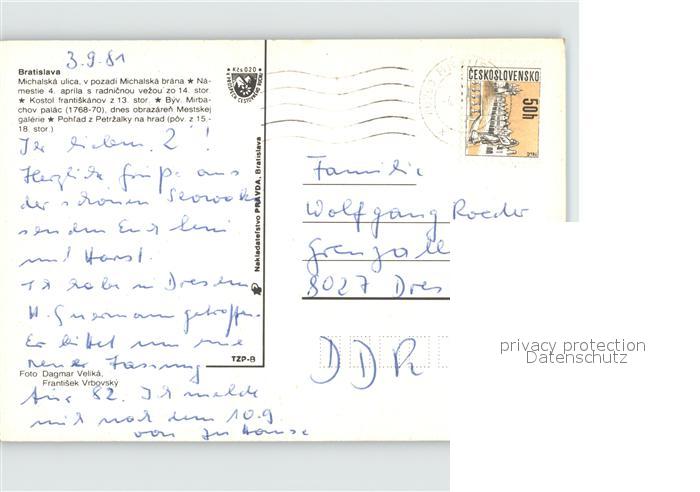 3.9.81
Bratislava
Michalská ulica, v pozadí Michalská brána ★ Ná-
mestie 4. apríla s radničnou vežou zo 14. stor.
★ Kostol františkánov z 13. stor. ★ Býv. Mirba-
chov palác (1768-70), dnes obrazáreň Mestskej
galérie ★ Pohľad z Petržalky na hrad (pôv. z 15.-
18. stor.)
Ihr lieben 2!
Herzliche Grüße aus
der schönen Slowakei
senden Euch
und Horst.
Ich habe in Dresden
H. getroffen.
Er bittet um eine
Fassung
82. Ich melde
mich nach dem 10.9.
von zu Hause
Foto Dagmar Veliká,
František Vrbovský
Kčs 0,20
Nakladateľstvo PRAVDA, Bratislava
TZP-B
ČESKOSLOVENSKO
50h
Familie
Wolfgang Roeder
8027 Dres
DDR
privacy protection
Datenschutz